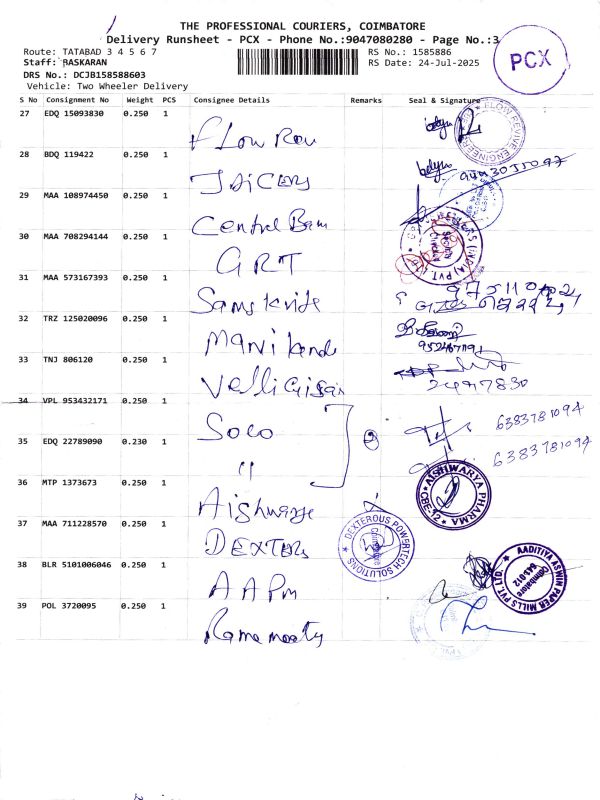 THE PROFESSIONAL COURIERS, COIMBATORE
Delivery Runsheet - PCX - Phone No.:9047080280 - Page No.:3
Route: TATABAD 3 4 5 6 7 RS No.: 1585886
Staff: BASKARAN RS Date: 24-Jul-2025
DRS No.: DCJB158588603
Vehicle: Two Wheeler Delivery
PCX
S No Consignment No Weight PCS Consignee Details Remarks Seal & Signature
27 EDQ 15093830 0.250 1 Flow Rev
FLOW REVIVE ENGINEERS
28 BDQ 119422 0.250 1
29 MAA 108974450 0.250 1 Central Bank
30 MAA 708294144 0.250 1 GRT
31 MAA 573167393 0.250 1
32 TRZ 125020096 0.250 1 Manikanda
33 TNJ 806120 0.250 1
34 VPL 953432171 0.250 1 SOCO 6383781094
35 EDQ 22789090 0.230 1 " 6383781094
36 MTP 1373673 0.250 1 Aishwarya
AISHWARYA PHARMA CBE-12
37 MAA 711228570 0.250 1 DEXTERS
DEXTEROUS POWERTECH SOLUTIONS Coimbatore
38 BLR 5101006046 0.250 1 AAPM
AADITIYA ASHWIN PAPER MILLS PVT. LTD. Coimbatore 641-012
39 POL 3720095 0.250 1 Ramamoorthy